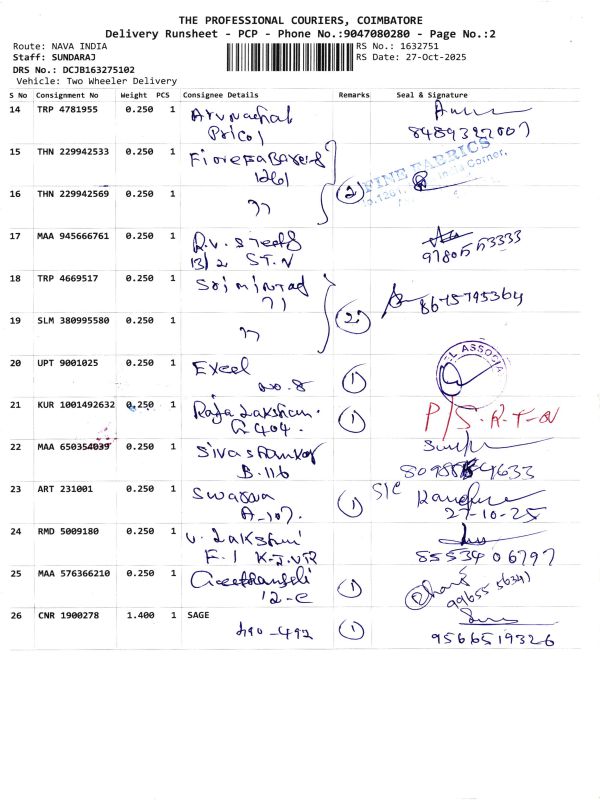 THE PROFESSIONAL COURIERS, COIMBATORE
Delivery Runsheet - PCP - Phone No.:9047080280 - Page No.:2
Route: NAVA INDIA
RS No.: 1632751
Staff: SUNDARAJ
RS Date: 27-Oct-2025
DRS No.: DCJB163275102
Vehicle: Two Wheeler Delivery
S No Consignment No Weight PCS Consignee Details Remarks Seal & Signature
14 TRP 4781955 0.250 1 Arunachal
Pricol
15 THN 229942533 0.250 1
1261
FINE FABRICS
16 THN 229942569 0.250 1 " 2
17 MAA 945666761 0.250 1 R.V. Steels
13/2 ST.V
18 TRP 4669517 0.250 1
8675795364
19 SLM 380995580 0.250 1 " 2
20 UPT 9001025 0.250 1 Excel
No. 8 1
ASSOCIA
21 KUR 1001492632 0.250 1 Raja Lakshmi.
G 404. 1
22 MAA 650354039 0.250 1 Sivashankar
B.116
23 ART 231001 0.250 1
A-107. 1
27-10-25
24 RMD 5009180 0.250 1 V. Lakshmi
F-1
8553406797
25 MAA 576366210 0.250 1 Geethanjali
12-C 1
26 CNR 1900278 1.400 1 SAGE
490-492 1
9566519326